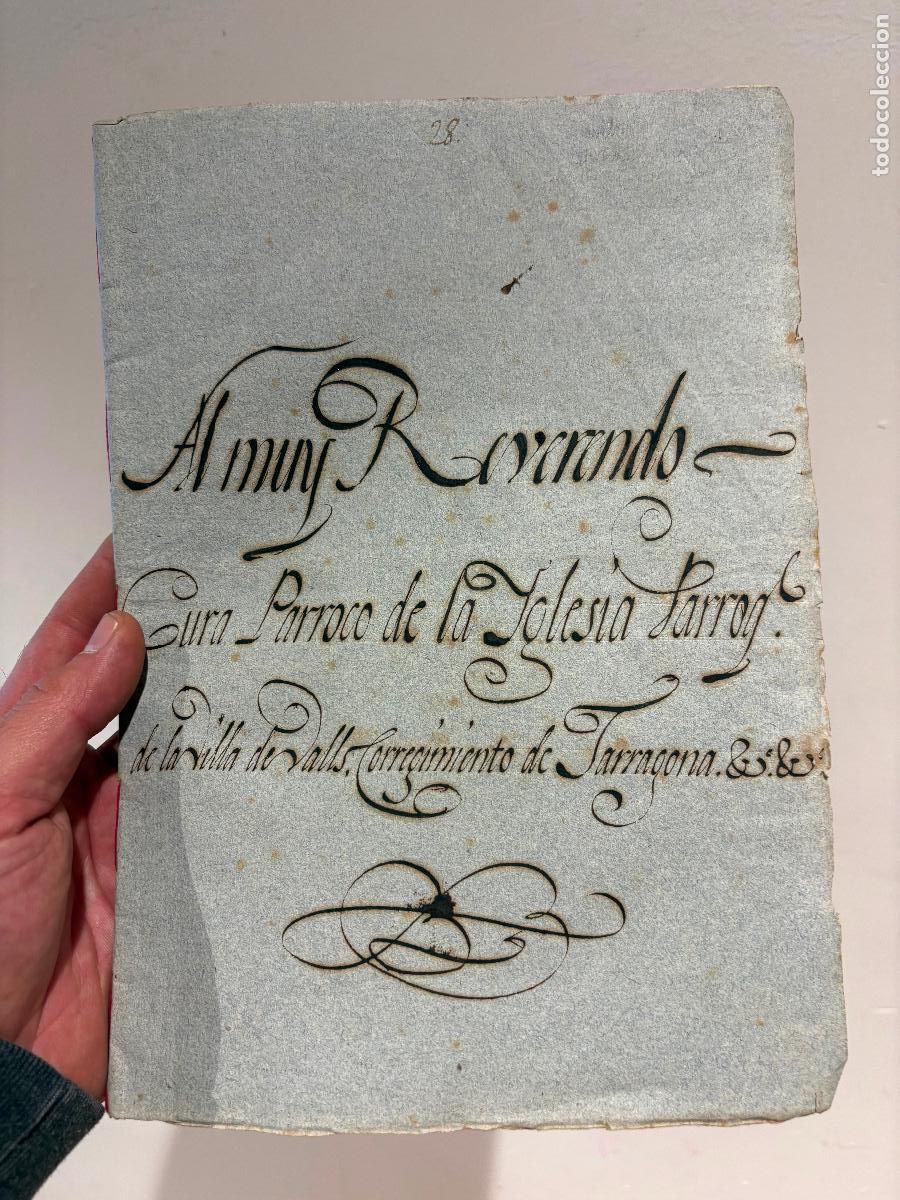 28.
Al muy Reverendo
Cura Parroco de la Iglesia Parroq.l
de la villa de Valls, Corregimiento de Tarragona. &c. &c.
todocoleccion